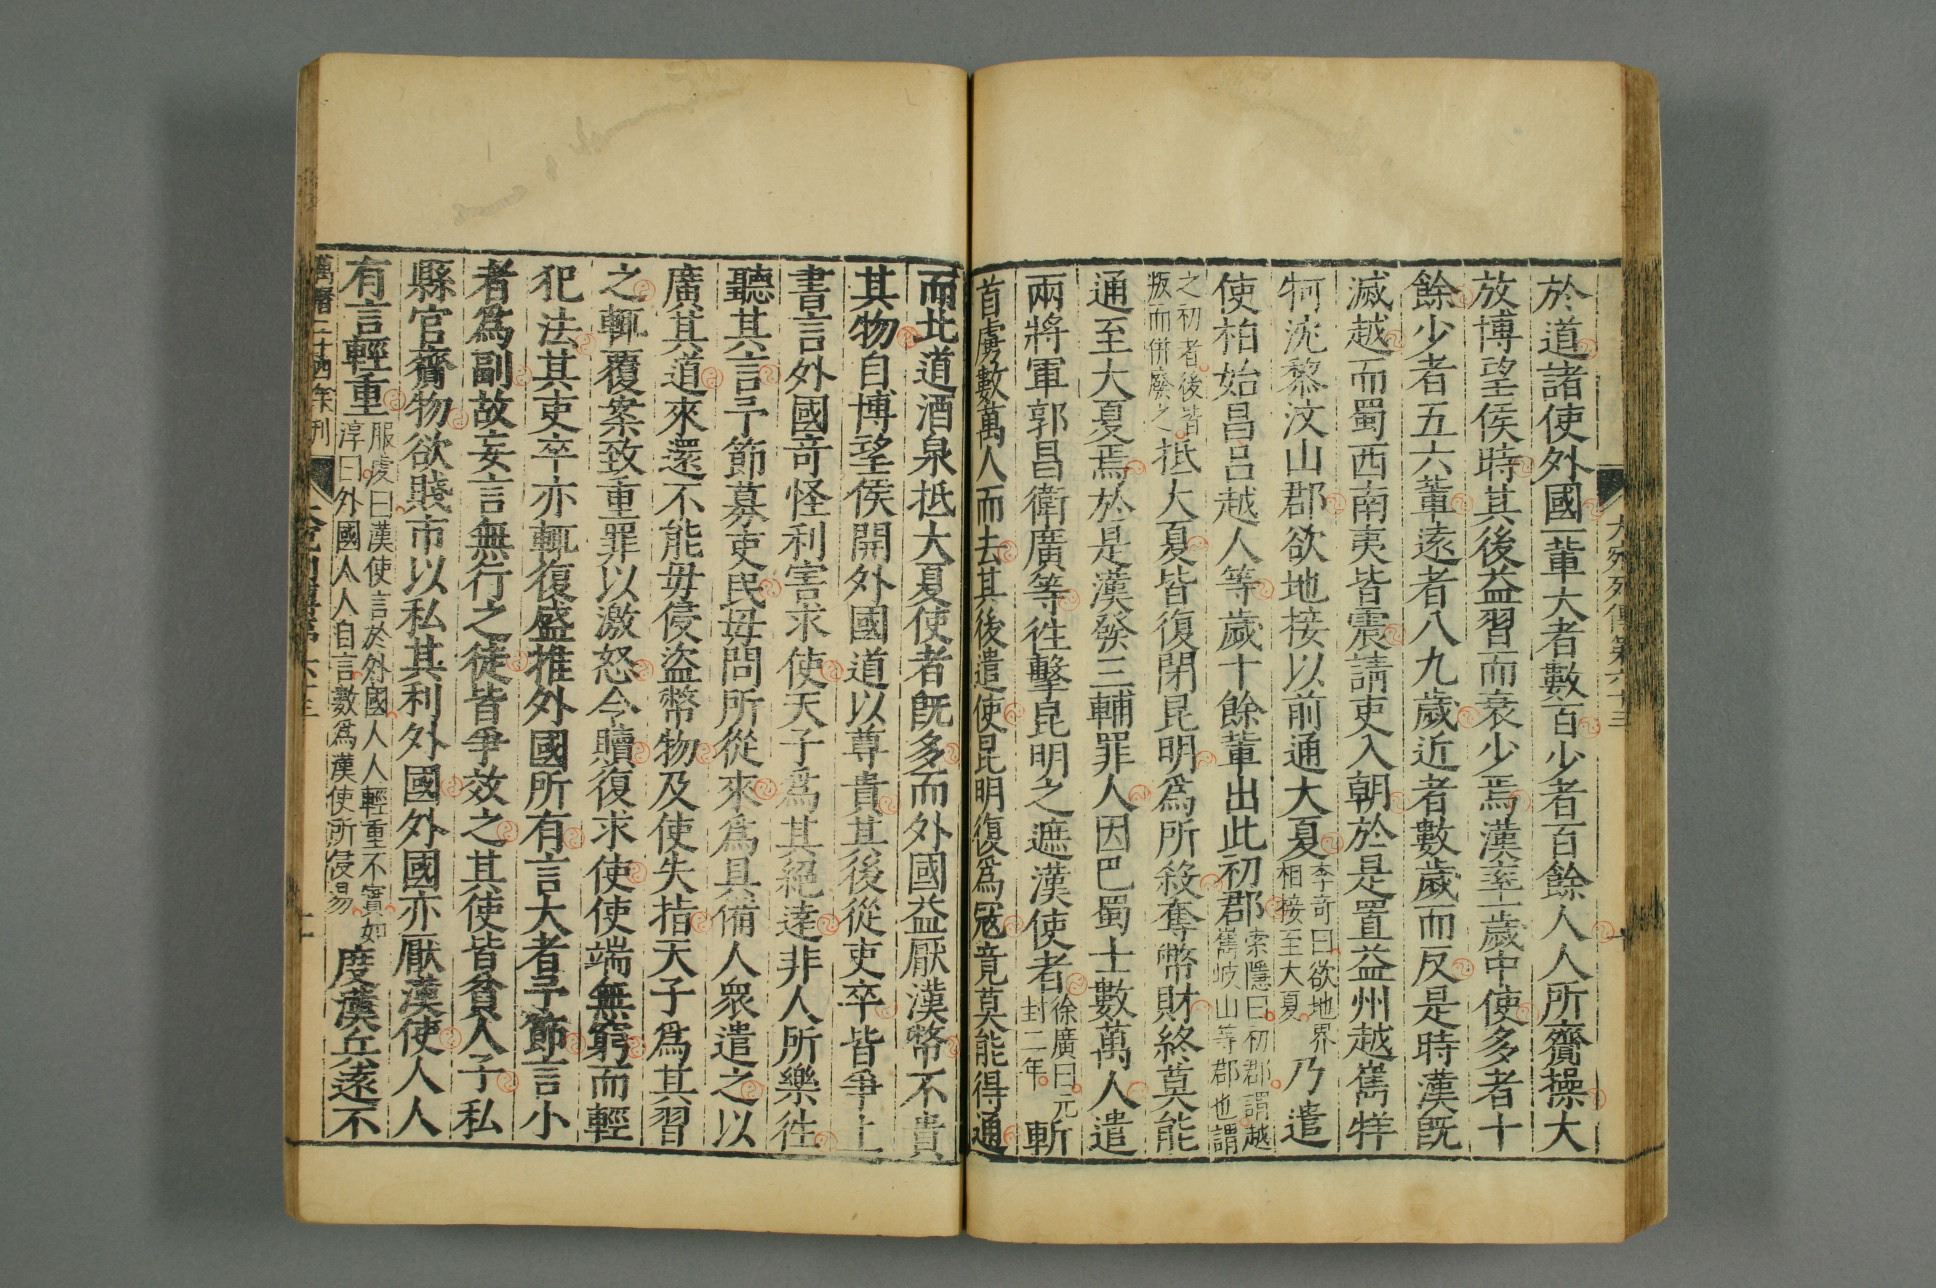 大宛列傳第六十三
於道諸使外國一輩大者數百少者百餘人人所齎操大
放博望侯時其後益習而衰少焉漢率一歲中使多者十
餘少者五六輩遠者八九歲近者數歲而反是時漢既
滅越而蜀西南夷皆震請吏入朝於是置益州越嶲牂
牁沈黎汶山郡欲地接以前通大夏李奇曰欲地界相接至大夏乃遣
使柏始昌呂越人等歲十餘輩出此初郡索隱曰初郡謂越嶲岐山等郡也謂
之初者後皆叛而併廢之抵大夏皆復閉昆明為所殺奪幣財終莫能
通至大夏焉於是漢發三輔罪人因巴蜀士數萬人遣
兩將軍郭昌衛廣等往擊昆明之遮漢使者徐廣曰元封二年斬
首虜數萬人而去其後遣使昆明復爲寇竟莫能得通
而北道酒泉抵大夏使者既多而外國益厭漢幣不貴
其物自博望侯開外國道以尊貴其後從吏卒皆爭上
書言外國奇怪利害求使天子為其絕遠非人所樂往
聽其言予節募吏民毋問所從來爲具備人衆遣之以
廣其道來還不能毋侵盜幣物及使失指天子爲其習
之輒覆案致重罪以激怒令贖復求使使端無窮而輕
犯法其吏卒亦輒復盛推外國所有言大者予節言小
者爲副故妄言無行之徒皆爭效之其使皆貧人子私
縣官齎物欲賤市以私其利外國外國亦厭漢使人人
有言輕重服虔曰漢使言於外國人人輕重不實如淳曰外國人人自言數爲漢使所侵易度漢兵遠不
萬曆二十四年刊
大宛列傳第六十三